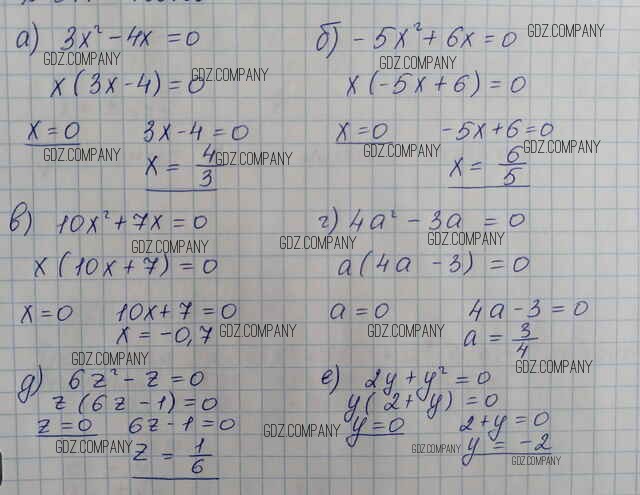 а) 3x² - 4x = 0
GDZ.COMPANY
x(3x - 4) = 0
GDZ.COMPANY
x = 0 3x - 4 = 0
GDZ.COMPANY
x = 4/3
GDZ.COMPANY
б) - 5x² + 6x = 0
GDZ.COMPANY
GDZ.COMPANY
x(-5x + 6) = 0
x = 0 -5x + 6 = 0
GDZ.COMPANY
GDZ.COMPANY
x = 6/5
в) 10x² + 7x = 0
GDZ.COMPANY
x(10x + 7) = 0
x = 0 10x + 7 = 0
x = -0,7
GDZ.COMPANY
г) 4a² - 3a = 0
GDZ.COMPANY
GDZ.COMPANY
a(4a - 3) = 0
a = 0 4a - 3 = 0
GDZ.COMPANY
a = 3/4
GDZ.COMPANY
GDZ.COMPANY
д) 6z² - z = 0
z(6z - 1) = 0
z = 0 6z - 1 = 0
GDZ.COMPANY
z = 1/6
е) 2y + y² = 0
y(2 + y) = 0
GDZ.COMPANY
y = 0 2 + y = 0
GDZ.COMPANY
y = -2
GDZ.COMPANY